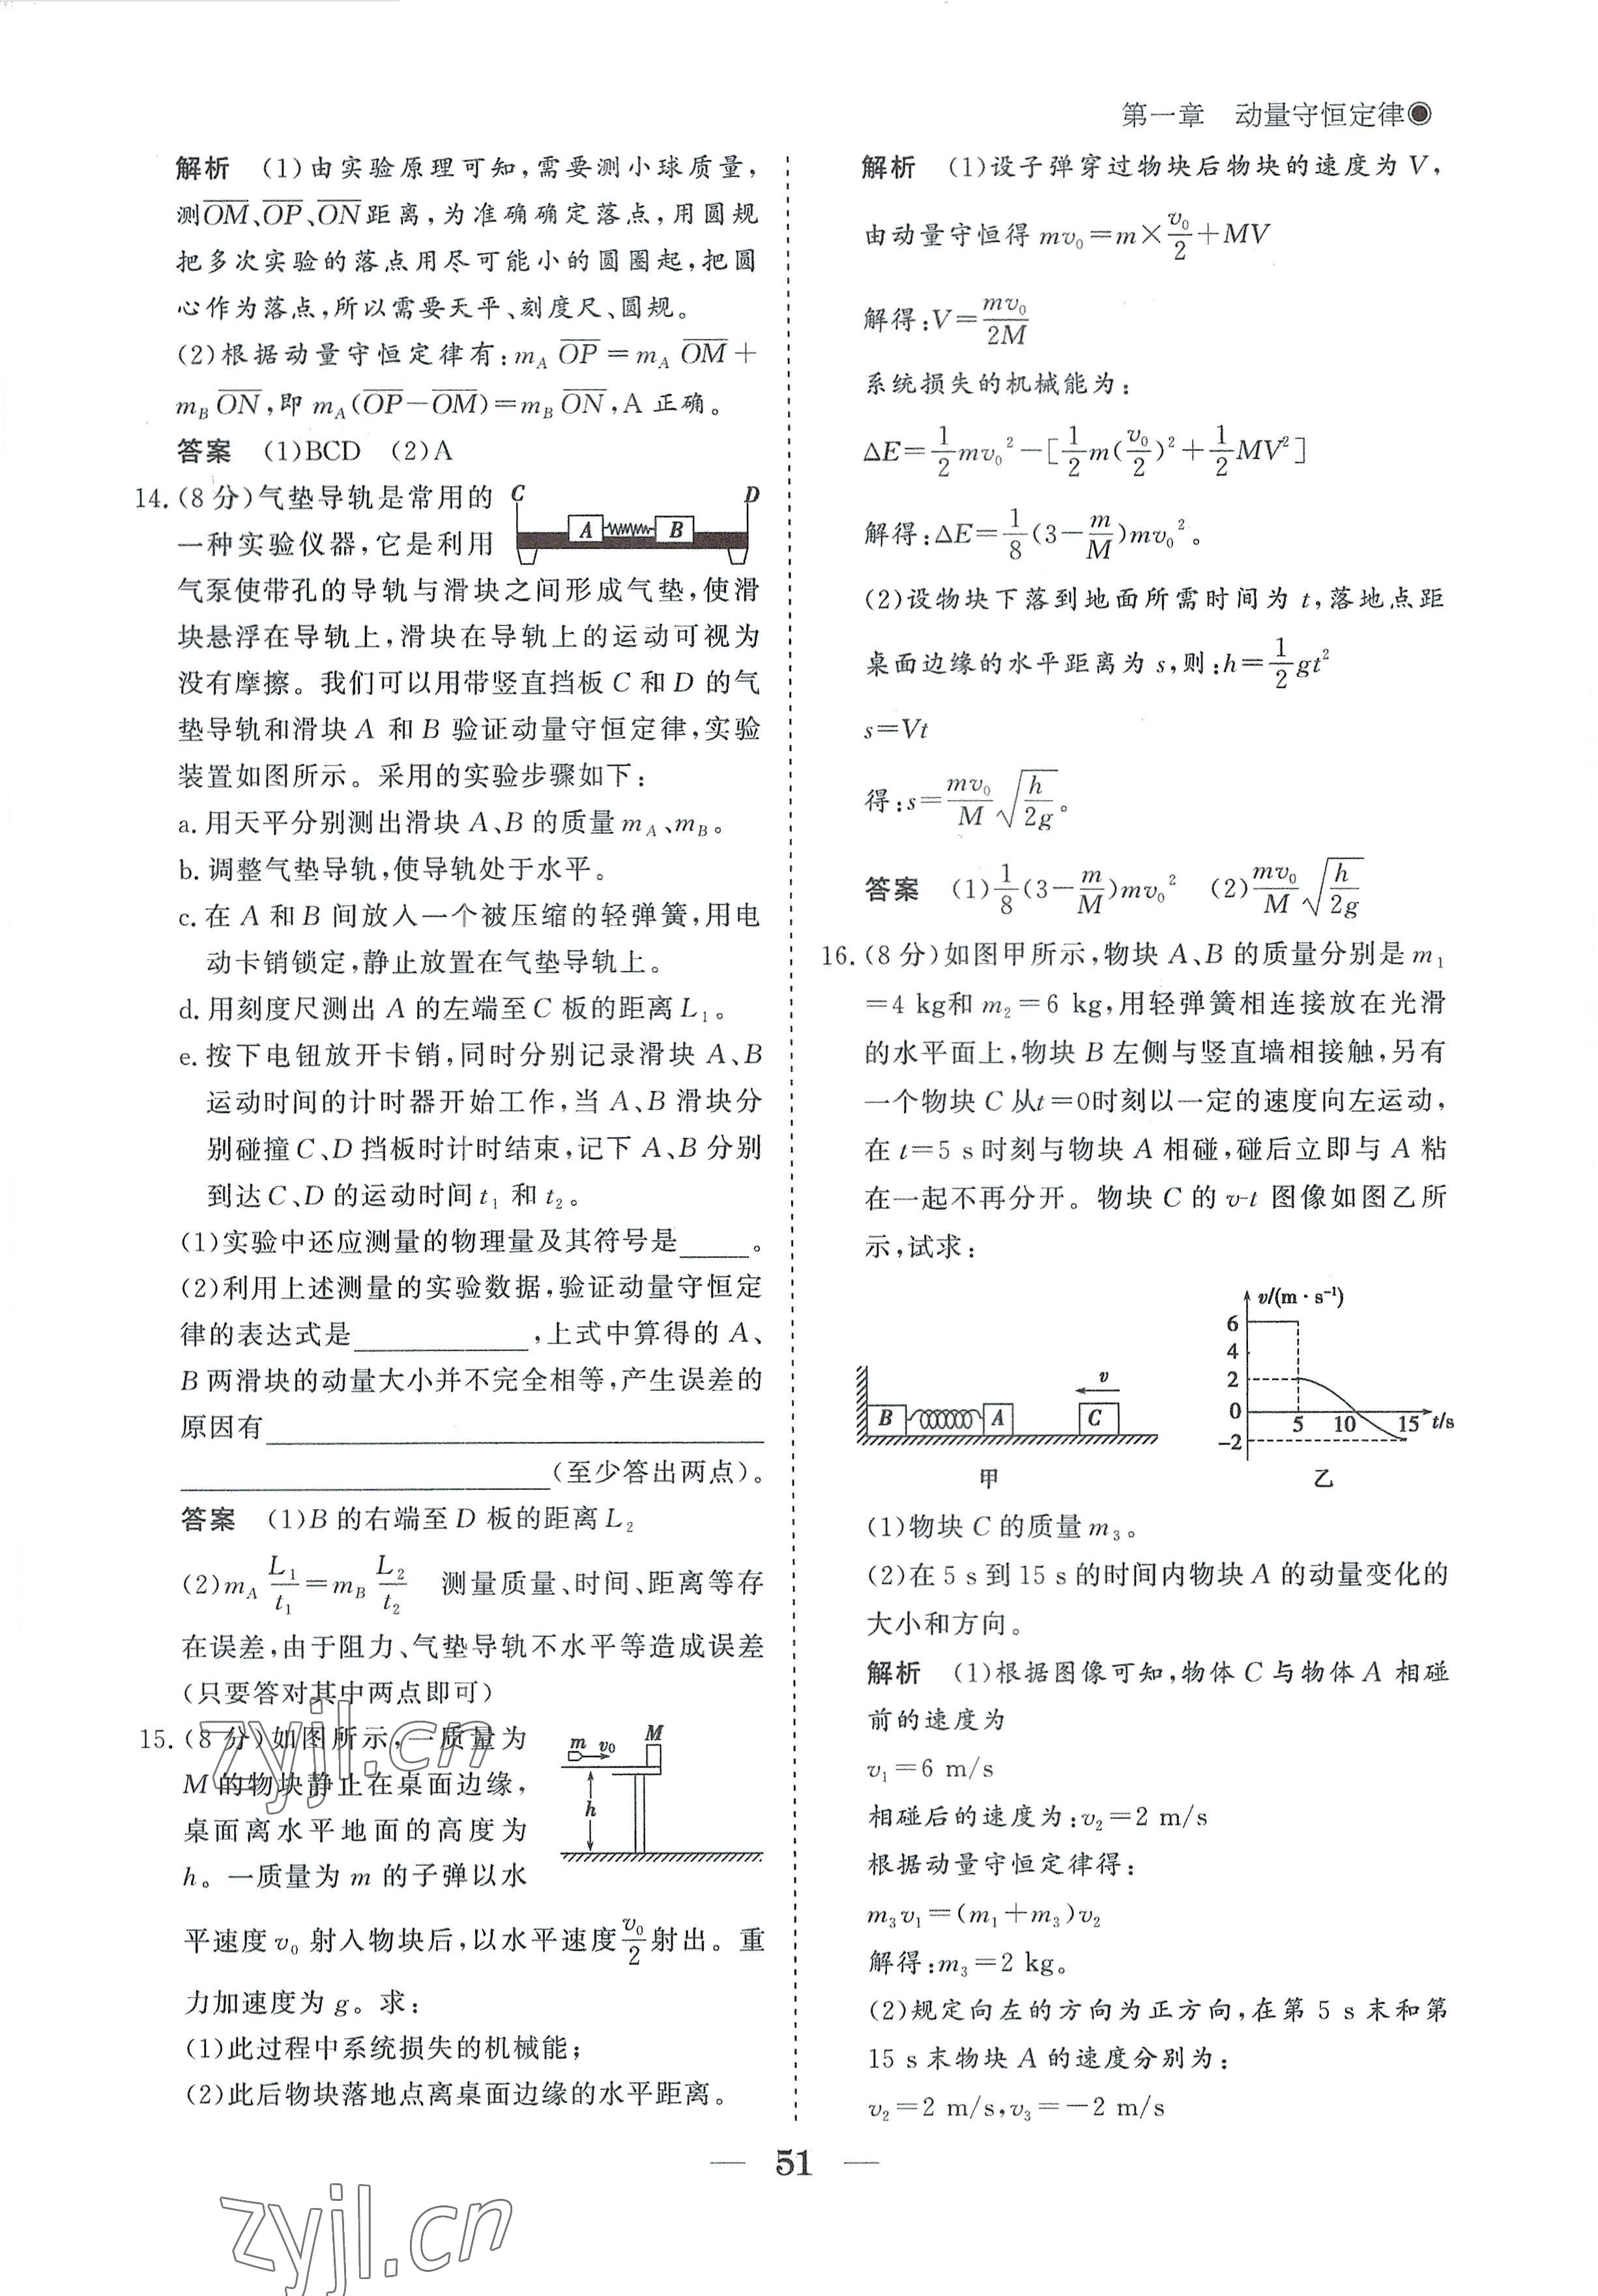 第一章 动量守恒定律
解析 (1)由实验原理可知,需要测小球质量,
测OM、OP、ON距离,为准确确定落点,用圆规
把多次实验的落点用尽可能小的圆圈起,把圆
心作为落点,所以需要天平、刻度尺、圆规。
(2)根据动量守恒定律有:m_A OP=m_A OM+
m_B ON,即 m_A(OP-OM)=m_B ON,A 正确。
答案 (1)BCD (2)A
14.(8 分)气垫导轨是常用的
一种实验仪器,它是利用
C D
A B
气泵使带孔的导轨与滑块之间形成气垫,使滑
块悬浮在导轨上,滑块在导轨上的运动可视为
没有摩擦。我们可以用带竖直挡板 C 和 D 的气
垫导轨和滑块 A 和 B 验证动量守恒定律,实验
装置如图所示。采用的实验步骤如下:
a. 用天平分别测出滑块 A、B 的质量 m_A、m_B。
b. 调整气垫导轨,使导轨处于水平。
c. 在 A 和 B 间放入一个被压缩的轻弹簧,用电
动卡销锁定,静止放置在气垫导轨上。
d. 用刻度尺测出 A 的左端至 C 板的距离 L₁。
e. 按下电钮放开卡销,同时分别记录滑块 A、B
运动时间的计时器开始工作,当 A、B 滑块分
别碰撞 C、D 挡板时计时结束,记下 A、B 分别
到达 C、D 的运动时间 t₁ 和 t₂。
(1)实验中还应测量的物理量及其符号是____。
(2)利用上述测量的实验数据,验证动量守恒定
律的表达式是__________,上式中算得的 A、
B 两滑块的动量大小并不完全相等,产生误差的
原因有______________________________
______________________(至少答出两点)。
答案 (1)B 的右端至 D 板的距离 L₂
(2)m_A L₁/t₁=m_B L₂/t₂ 测量质量、时间、距离等存
在误差,由于阻力、气垫导轨不水平等造成误差
(只要答对其中两点即可)
15.(8 分)如图所示,一质量为
M 的物块静止在桌面边缘,
桌面离水平地面的高度为
h。一质量为 m 的子弹以水
m v₀ M
h
平速度 v₀ 射入物块后,以水平速度 v₀/2 射出。重
力加速度为 g。求:
(1)此过程中系统损失的机械能;
(2)此后物块落地点离桌面边缘的水平距离。
解析 (1)设子弹穿过物块后物块的速度为 V,
由动量守恒得 mv₀=m×v₀/2+MV
解得:V=mv₀/2M
系统损失的机械能为:
ΔE=1/2 mv₀²-[1/2 m(v₀/2)²+1/2 MV²]
解得:ΔE=1/8(3-m/M)mv₀²。
(2)设物块下落到地面所需时间为 t,落地点距
桌面边缘的水平距离为 s,则:h=1/2 gt²
s=Vt
得:s=mv₀/M √(h/2g)。
答案 (1)1/8(3-m/M)mv₀² (2)mv₀/M √(h/2g)
16.(8 分)如图甲所示,物块 A、B 的质量分别是 m₁
=4 kg和 m₂=6 kg,用轻弹簧相连接放在光滑
的水平面上,物块 B 左侧与竖直墙相接触,另有
一个物块 C 从t=0时刻以一定的速度向左运动,
在 t=5 s 时刻与物块 A 相碰,碰后立即与 A 粘
在一起不再分开。物块 C 的 v-t 图像如图乙所
示,试求:
B A C v
甲
v/(m·s⁻¹)
6
4
2
0
-2
5 10 15 t/s
乙
(1)物块 C 的质量 m₃。
(2)在 5 s 到 15 s 的时间内物块 A 的动量变化的
大小和方向。
解析 (1)根据图像可知,物体 C 与物体 A 相碰
前的速度为
v₁=6 m/s
相碰后的速度为:v₂=2 m/s
根据动量守恒定律得:
m₃v₁=(m₁+m₃)v₂
解得:m₃=2 kg。
(2)规定向左的方向为正方向,在第 5 s 末和第
15 s 末物块 A 的速度分别为:
v₂=2 m/s,v₃=-2 m/s
— 51 —
zyjl.cn
zyjl.cn